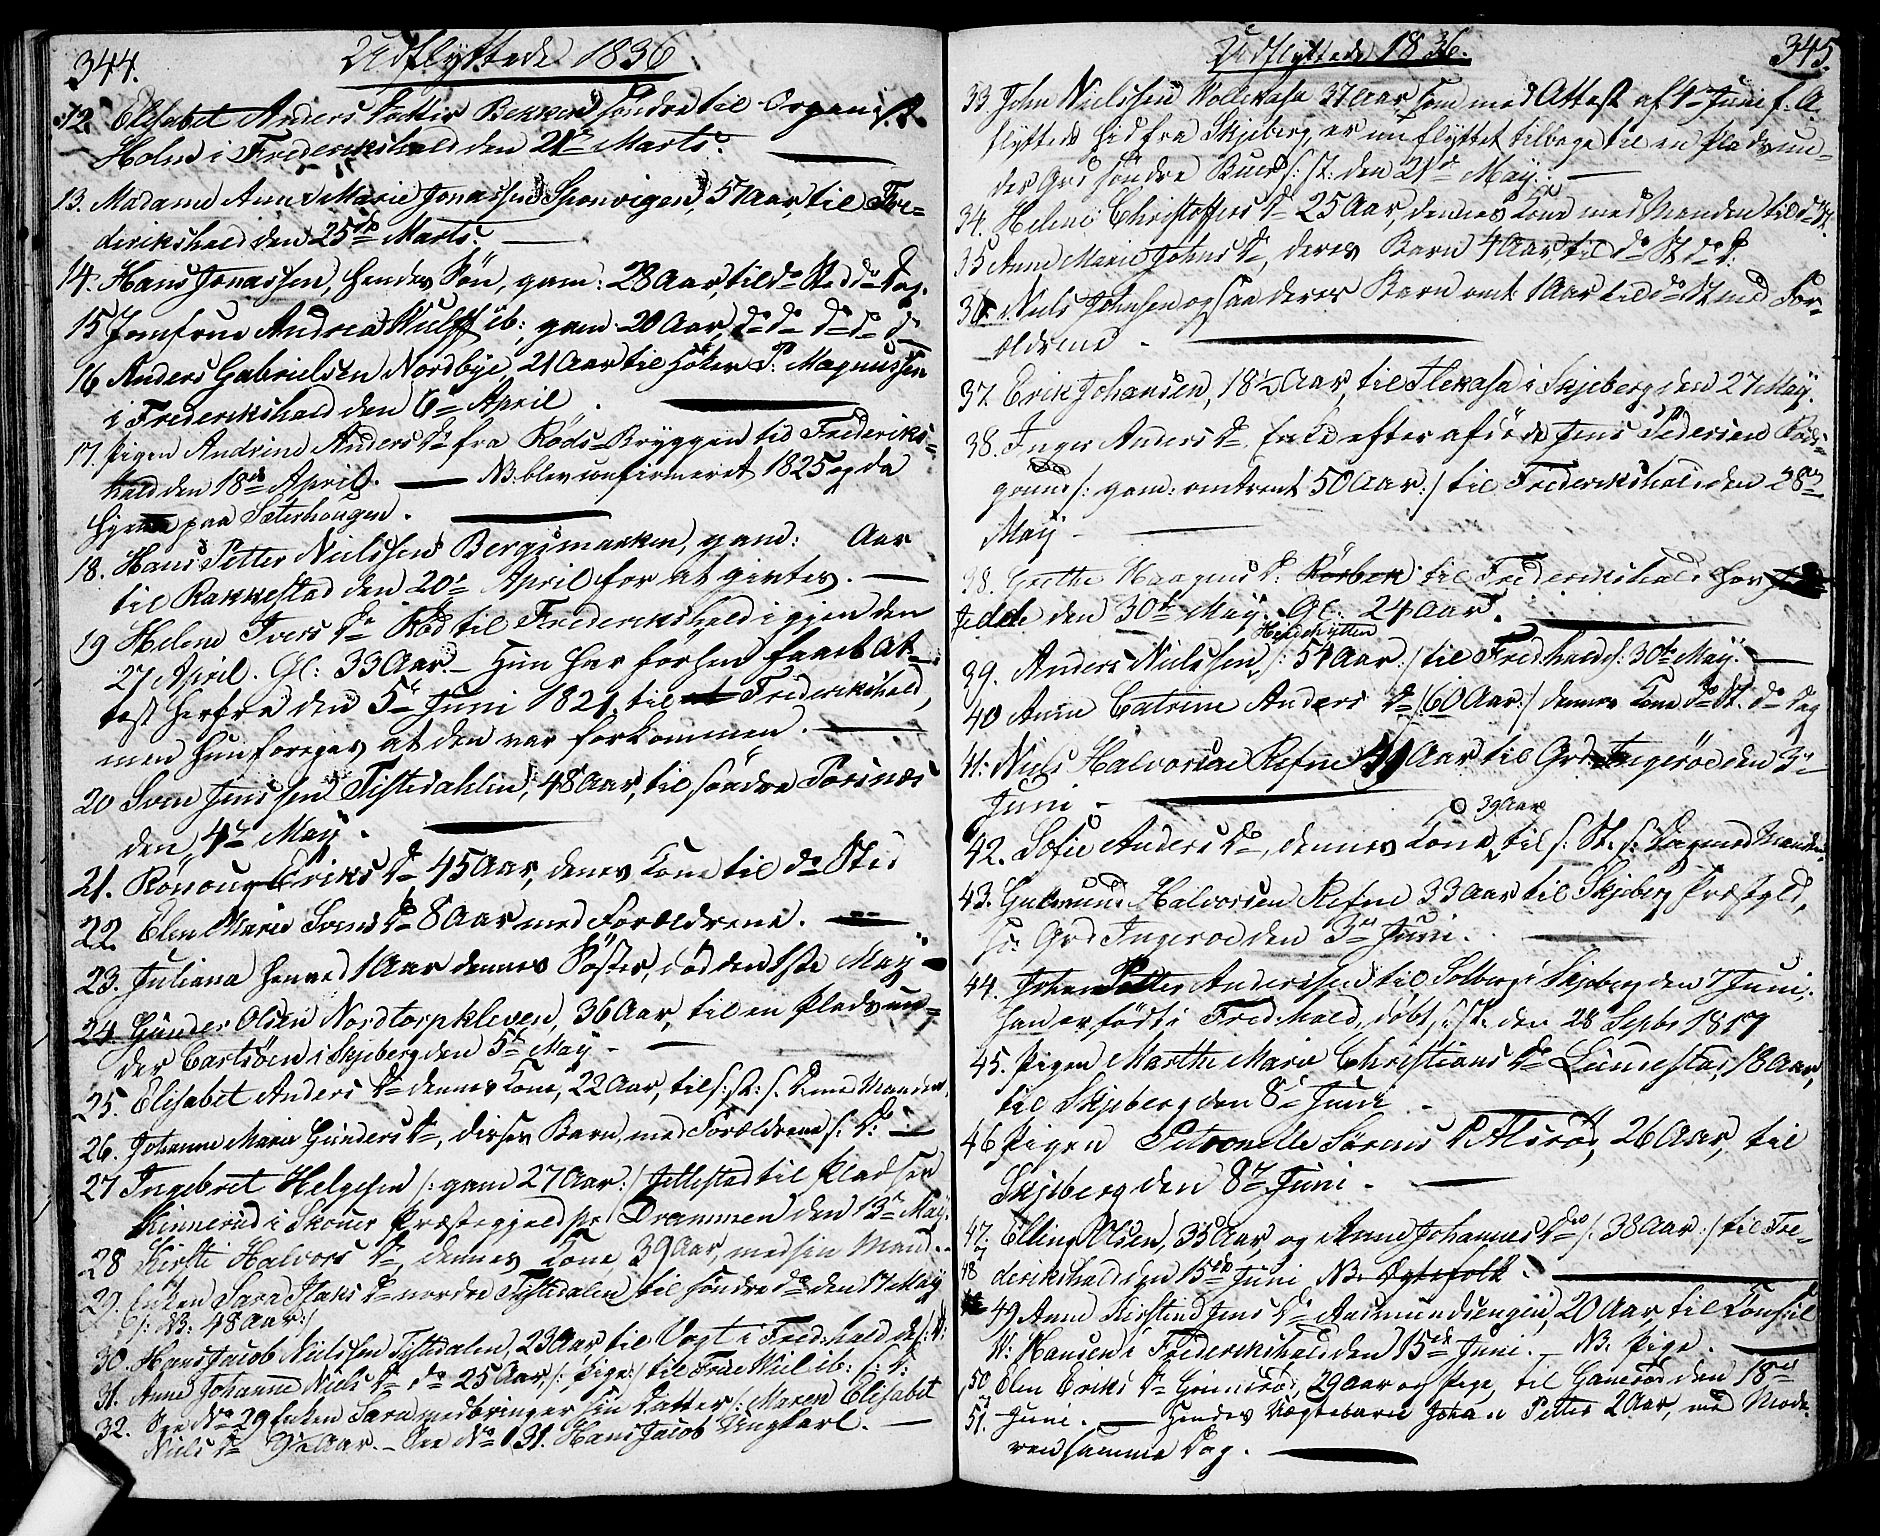 344.
Udflyttede 1836.
12. Elisabet Anders Datter Bekken søndre til Organist
Holm i Frederikshald den 21de Marts.
13. Madame Anne Marie Jonassen Sponvigen, 51 Aar, til Fre-
derikshald den 25de Marts.
14. Hans Jonassen, hendes Søn, gam: 28 Aar, til do Sted do Dag.
15 Jomfrue Andrea Wulff ib: gam 20 Aar, do do do do do
16 Anders Gabrielsen Nordbye 21 Aar til Høker P. Magnussen
i Frederikshald den 6te April.
17. Pigen Andrine Anders Dr fra Røds-Bryggen til Frederiks-
hald den 18de April. NB: blev confirmeret 1825 og da
paa Sæterhougen.
18. Hans Petter Nielssen Bergsmarken, gam: Aar
til Rakkestad den 20de April for at giftes.
19 Helene Ivers Dr Rød til Frederikshald igjen den
27 April. Gl: 33 Aar. Hun har forhen faaet At-
test herfra den 5te Juni 1821 til Frederikshald,
men hun foregav at den var forkommen.
20 Sven Jenssen Tistedahlen, 48 Aar, til søndre Torsnæs
den 4de May.
21. Rønoug Eriks Dr 45 Aar, dennes Kone til do Sted
22. Elen Marie Svens Dr 8 Aar med Forældrene.
23. Juliana henved 1 Aar dennes Søster, død den 1ste May
24. Gunder Olsen Nordtorpkleven, 36 Aar, til en Plads un-
der Cartsöen i Skjeberg den 5te May
25. Elisabet Anders Dr dennes Kone, 22 Aar, til s: St: s: D. med Manden.
26. Johanne Marie Gunders Dr, disses Barn, med Forældrene s: D:
27 Ingebret Helgesen /: gam 27 Aar :/ Jellestad til Pladsen
Kinnerud i Skouer Præstegjeld pr Drammen den 13de May.
28 Kirsti Halvors Dr, dennes Kone 39 Aar, med sin Mand.
29. Enken Sara Isaks Dr nordre Tistedalen til søndre do den 17 May
/: NB: 48 Aar :/
30. Hans Jacob Nielssen Tistedalen, 23 Aar til Vogt i Fredrhald
31. Anne Johanne Niels Dr do 25 Aar, /: Pige :/ til Frue Wiel ib: s: D:
32. See No 29 Enken Sara medbringer sin Datter /: Maren Elisabet
Niels Dr 9½ Aar. See No 31. Hans Jacob Ungkarl.
345.
Udflyttede 1836.
33 John Nielssen Kollekasa 37 Aar som med Attest af 4de Juni f. A.
flyttede hid fra Skjeberg, er nu flyttet tilbage til en Plads un-
der Grd søndre Buer s: St: den 21de May.
34. Helene Christoffers Dr 25 Aar, dennes Kone med Manden til do St.
35 Anne Marie Johns Dr, deres Barn 4 Aar, til do St do D:
36. Niels Johnsen ogsaa deres Barn omt 1 Aar til do St med For-
ældrene.
37 Erik Johansen, 18½ Aar, til Flekasa i Skjeberg den 27 May.
38. Inger Anders Dr, Enke efter afdøde Jens Pedersen Røds-
gaund /: gam: omtrent 50 Aar :/ til Frederikshald den 28de
May
98. Grethe Haagens Dr. Rørbek til Frederikshald
den 30te May. Gl: 24 Aar.
39. Anders Nielssen Heldehytten /: 54 Aar :/ til Fredrhald s: 30te May.
40 Anne Catrine Anders Dr /: 60 Aar :/ dennes Kone do St. do Dag
41. Niels Halvorsen Refne 41 Aar til Grd Ingerøe den 3de
Juni
42. Sofie Anders Dr, dennes Kone 39 Aar, til s: St. s: Dag med Manden
43. Gulmund Halvorsen Refne 33 Aar til Skjeberg Præstgld,
Grd Ingeroe den 3de Juni.
44. Johan Petter Anderssen til Solberg i Skjeberg den 7 Juni.
han er født i Fredrhald, døbt, den 28 Septbr 1817
45. Pigen Marthe Marie Christians Dr Lundestad, 18 Aar,
til Skjeberg den 8de Juni
46 Pigen Petronelle Sørens D Alsrød, 26 Aar, til
Skjeberg den 8de Juni
47. Elling Olsen, 35 Aar, og Anne Johannes Dr /: 38 Aar :/ til Fre-
48 derikshald den 15de Juni NB: Ægtefolk.
49 Anne Kirstine Jens Dr Aasmundsengen, 20 Aar, til Consul
W: Hansen i Frederikshald den 15de Juni. NB. Pige.
50 Elen Eriks Dr Grimsrød, 29 Aar og Pige, til Gamrød den 18de
51. Juni. Hendes Uægtebarn Johan Petter 2 Aar, med Mode-
ren samme Dag.